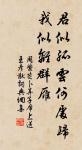 君似孤雲何處歸
我似離群雁
周紫芝卜算子席上送
王彥猷詞典網集